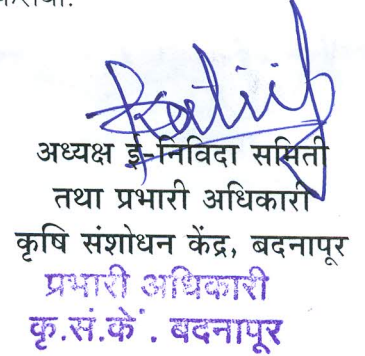 अध्यक्ष ई-निविदा समिती
तथा प्रभारी अधिकारी
कृषि संशोधन केंद्र, बदनापूर
प्रभारी अधिकारी
कृ.सं.कें. बदनापूर